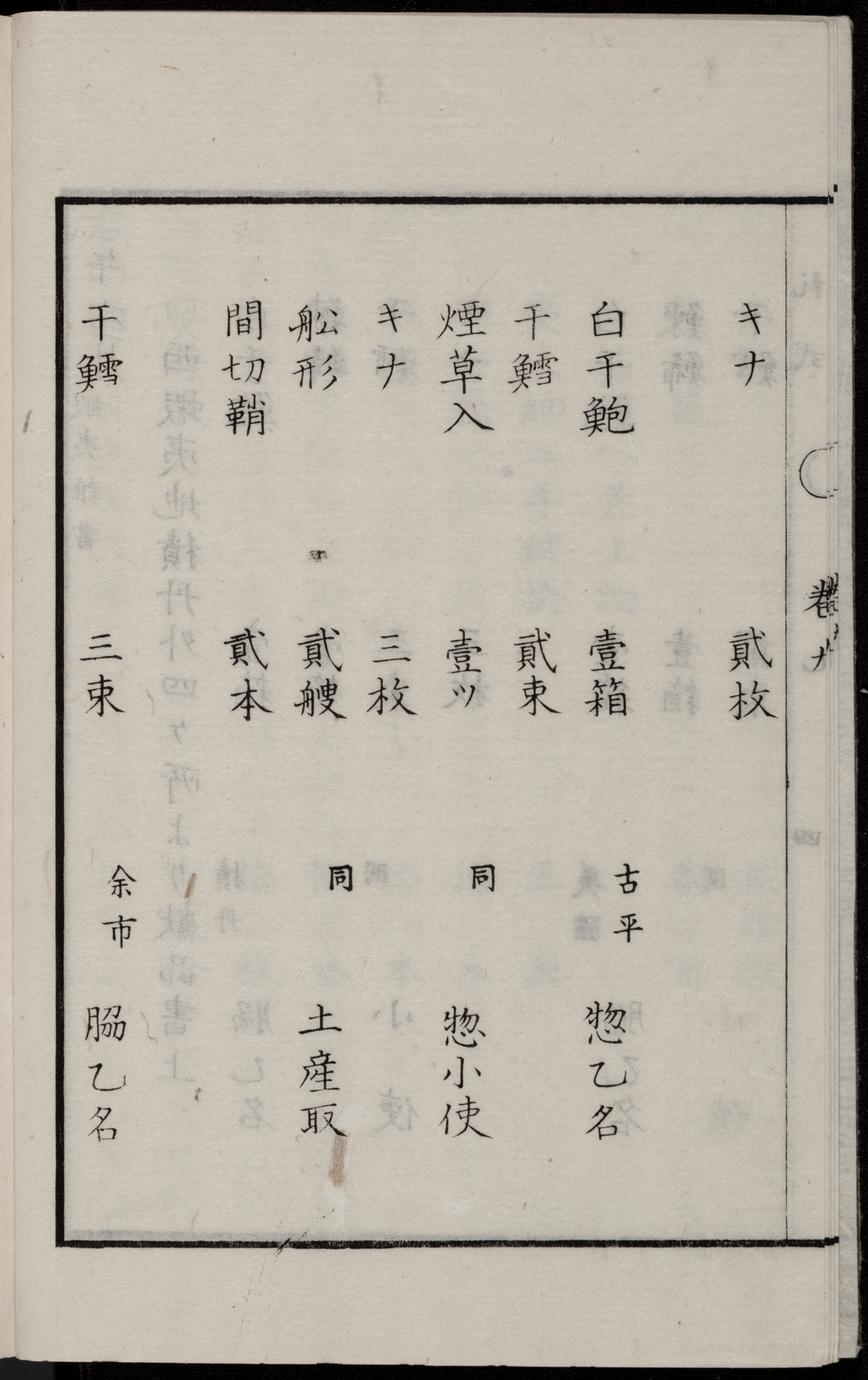 キナ 貳枚
白干鮑 壹箱 古平 惣乙名
干鱈 貳束
煙草入 壹ツ 同 惣小使
キナ 三枚
舩形 貳艘 同 土産取
間切鞘 貳本
干鱈 三束 余市 脇乙名